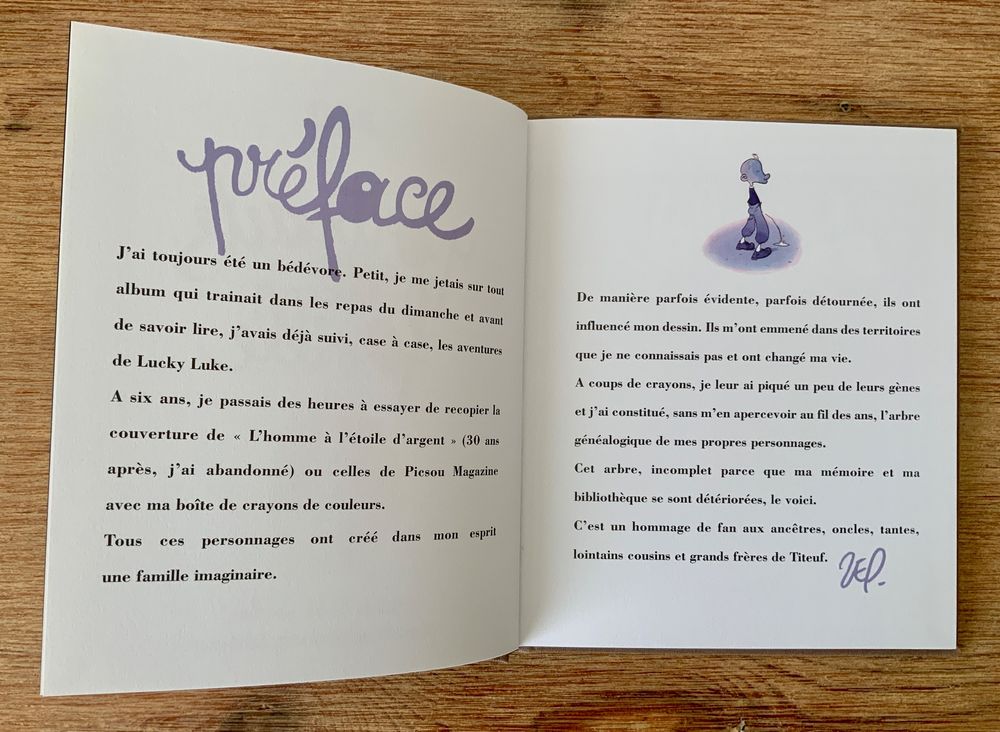 préface
J'ai toujours été un bédévore. Petit, je me jetais sur tout
album qui trainait dans les repas du dimanche et avant
de savoir lire, j'avais déjà suivi, case à case, les aventures
de Lucky Luke.
A six ans, je passais des heures à essayer de recopier la
couverture de « L'homme à l'étoile d'argent » (30 ans
après, j'ai abandonné) ou celles de Picsou Magazine
avec ma boîte de crayons de couleurs.
Tous ces personnages ont créé dans mon esprit
une famille imaginaire.
De manière parfois évidente, parfois détournée, ils ont
influencé mon dessin. Ils m'ont emmené dans des territoires
que je ne connaissais pas et ont changé ma vie.
A coups de crayons, je leur ai piqué un peu de leurs gènes
et j'ai constitué, sans m'en apercevoir au fil des ans, l'arbre
généalogique de mes propres personnages.
Cet arbre, incomplet parce que ma mémoire et ma
bibliothèque se sont détériorées, le voici.
C'est un hommage de fan aux ancêtres, oncles, tantes,
lointains cousins et grands frères de Titeuf.
ZEP.